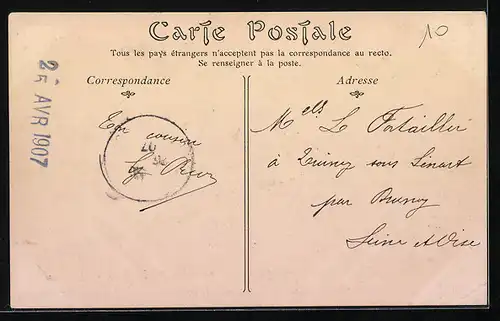 Carte Postale
10
Tous les pays étrangers n'acceptent pas la correspondance au recto.
Se renseigner à la poste.
Correspondance
Adresse
25 AVR 1907
Ton cousin
07
Melle L
à Quincy sous Sénart
par Brunoy
Seine et Oise